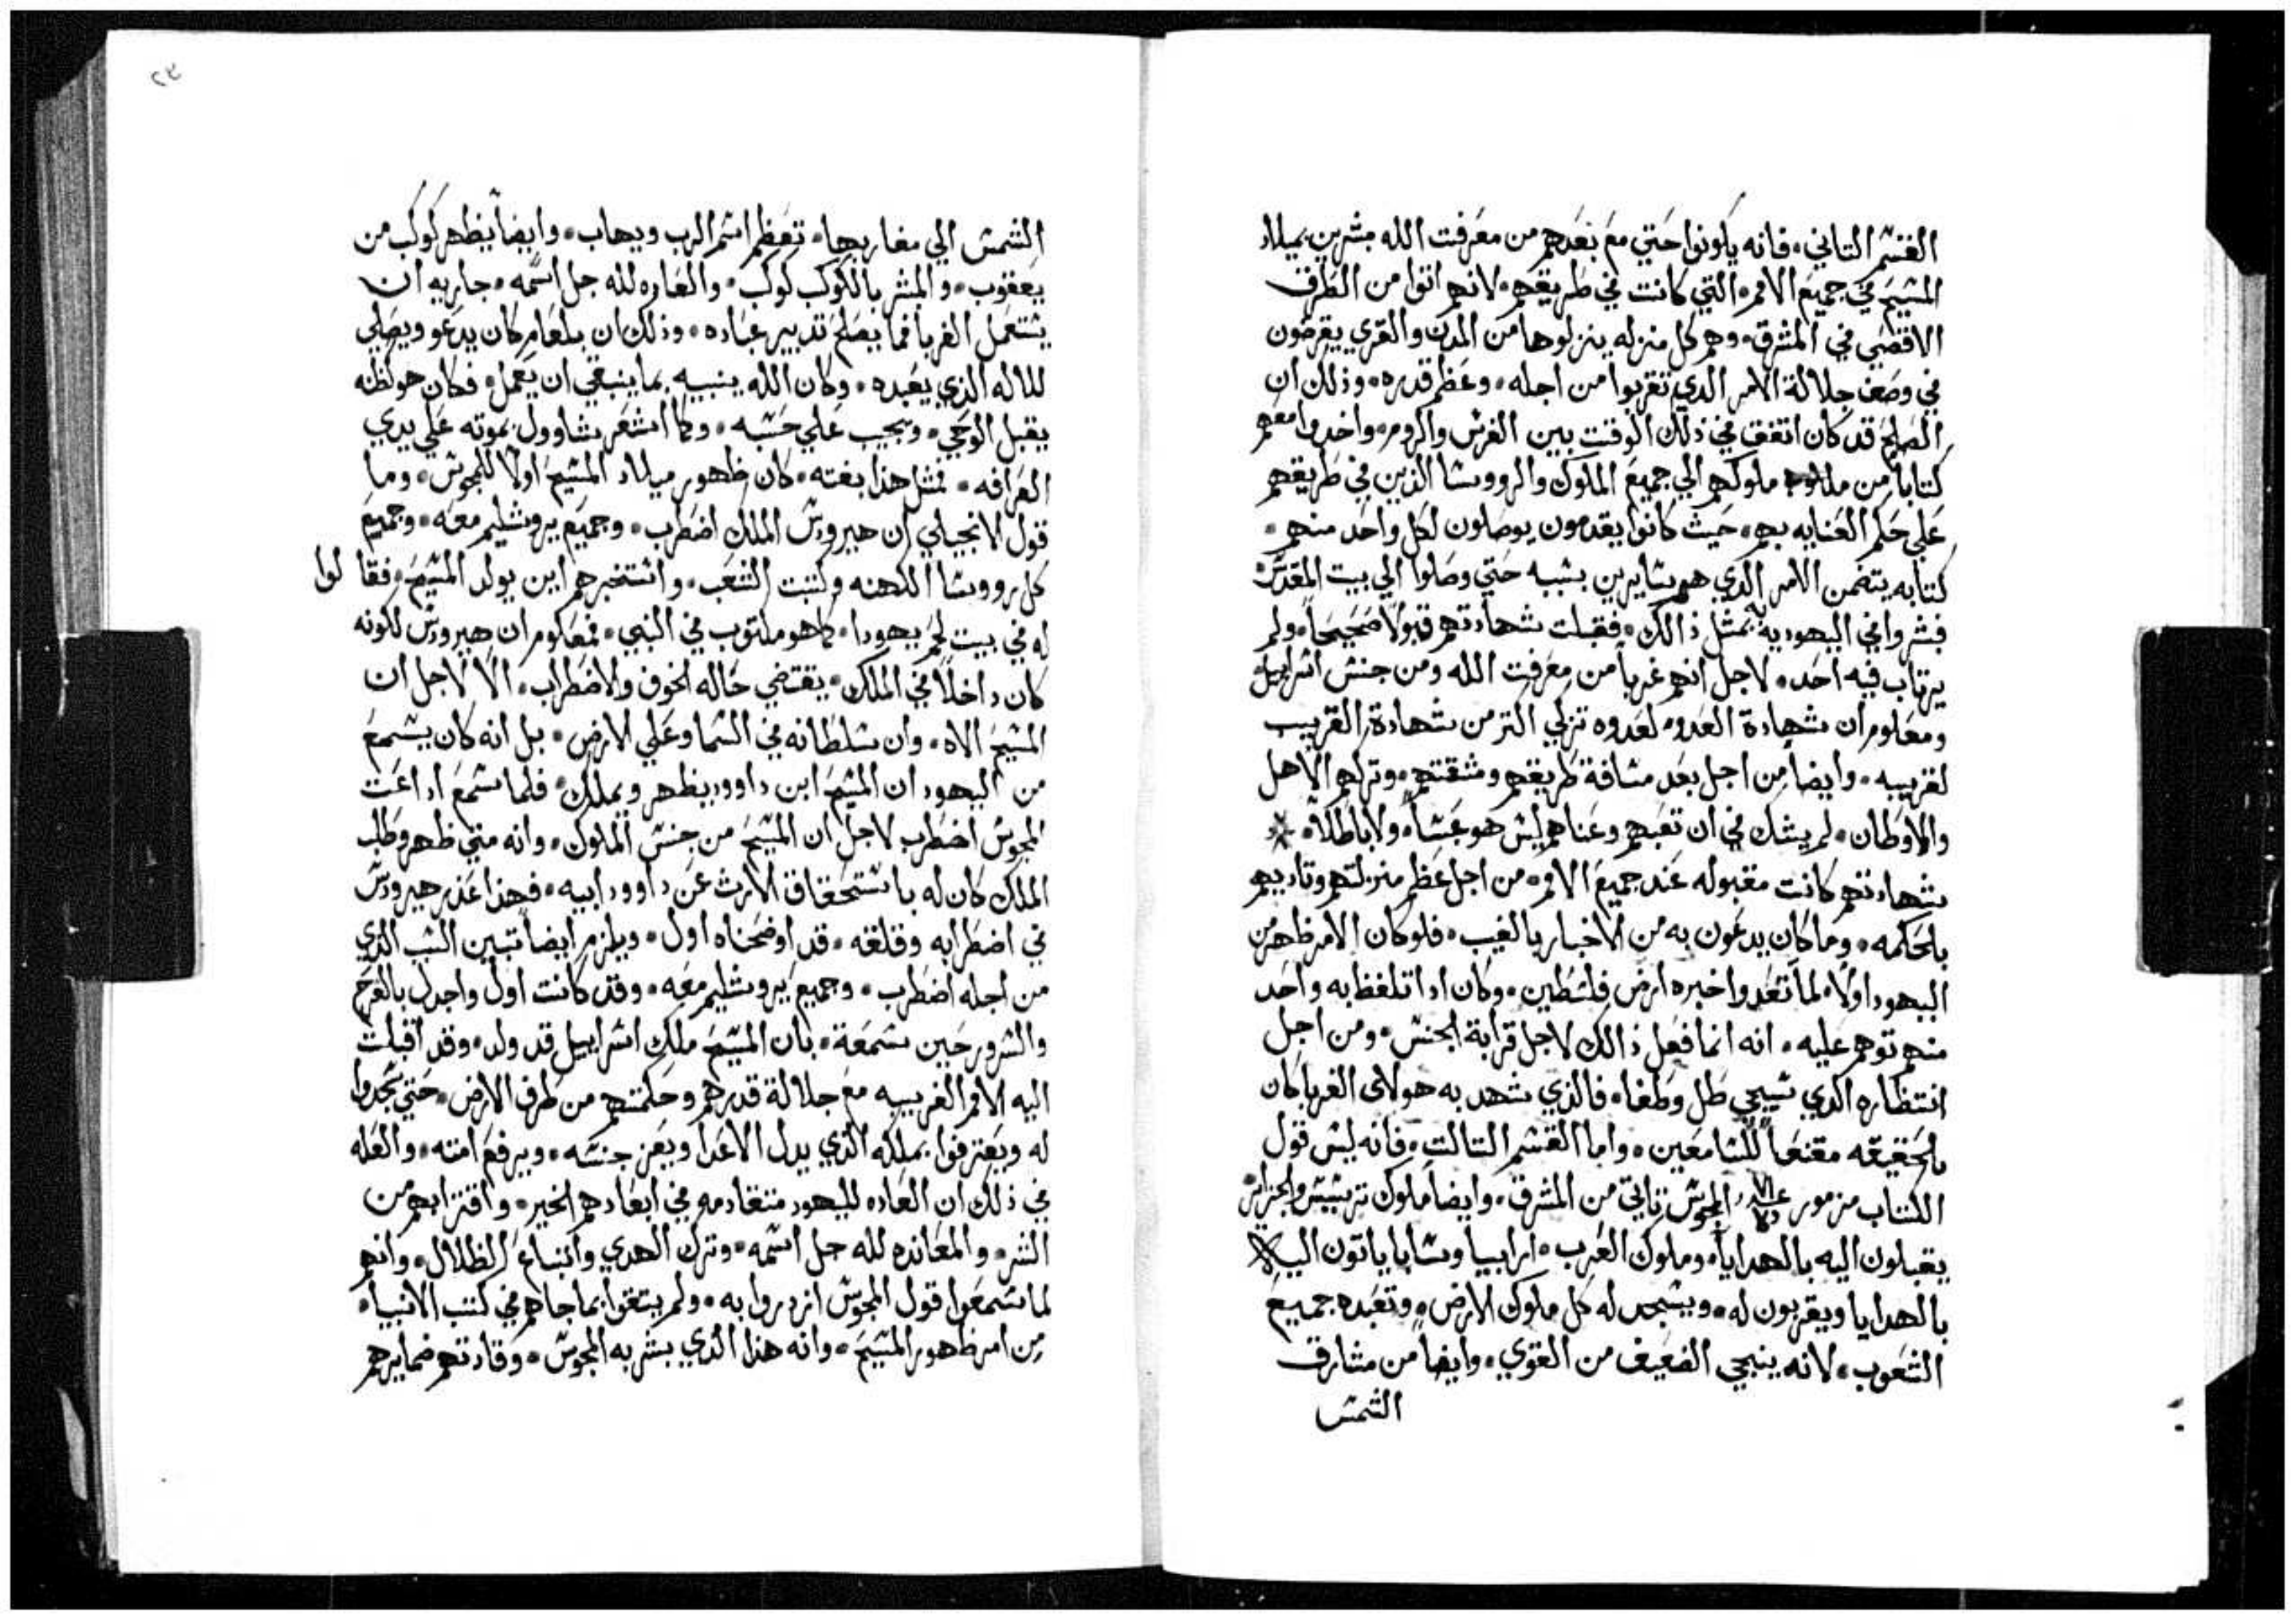 القسم التاني. فانه يكونوا حتي مع بعدهم من معرفت الله مبشرين بميلاد
المسيح في جميع الامم. التي كانت في طريقهم. لانهم اتوا من الطرف
الاقصي في المشرق. وهم كل منزله ينزلوها من المدن والقري يقرضون
في وصف جلالة الامر الدي تقربوا من اجله. وعظم قدره. وذلك ان
الصلح قد كان اتفق في ذلك الوقت بين الفرس والروم. واخدوا معهم
كتاباً من ملوكهم الي جميع الملوك والرووسا الذين في طريقهم
علي حكم العنايه بهم. حيث كانوا يقدمون يوصلون لكل واحد منهم.
كتابه يتضمن الامر الدي هم سايرين بسببه حتي وصلوا الي بيت المقدس
فبشروا في اليهوديه بمثل ذالك. فقبلت شهادتهم قبولاً صحيحاً. ولم
يرتاب فيه احد. لاجل انهم غربا من معرفت الله ومن جنس اسراييل
ومعلوم ان شهادة العدو. لعدوه تزكي اكتر من شهادة القريب
لقريبه. وايضاً من اجل بعد مسافة طريقهم ومشقتهم. وتركهم الاهل
والاوطان. لم يشك في ان تعبهم وعناهم ليس هو عبثاً. ولا باطلاً.
شهادتهم كانت مقبوله عند جميع الامم. من اجل عظم منزلتهم وتاديبهم
بالحكمه. وما كان يدعون به من الاخبار بالغيب. فلو كان الامر ظهر من
اليهود اولاً. لما تعدوا خبره ارض فلسطين. وكان ادا تلفظ به واحد
منهم توهم عليه. انه انما فعل ذالك لاجل قرابة الجنس. ومن اجل
انتظاره الدي سيجي طل وطغا. فالذي شهد به هولاى الغربا كان
بالحقيقه مقنعاً للسامعين. واما القسم التالت. فانه ليس قول
الكتاب مزمور المجوس تاتي من المشرق. وايضاً ملوك ترسيس والجزاير
يقبلون اليه بالهدايا. وملوك العرب. ارابيا وسابا ياتون اليه
بالهدايا ويقربون له. ويسجد له كل ملوك الارض. وتعبده جميع
الشعوب. لانه ينجي الضعيف من القوي. وايضاً من مشارق
الشمس
٢٤
الشمس الي مغاربها. تعظم اسم الرب ويهاب. وايضاً يظهر كوكب من
يعقوب. والمبشر بالكوكب كوكب. والعاده لله جل اسمه. جاريه ان
يستعمل الغربا فما يصلح تدبير عباده. وذلك ان بلعام كان يدعو ويصلي
للاله الذي يعبده. وكان الله ينبيه بما ينبغي ان يعمل. فكان هو لظنه
يقبل الوحي. ويجيب علي حسبه. وكما استشعر شاوول بموته علي يدي
العرافه. فمثل هذا بغته. كان ظهور ميلاد المسيح اولاً للمجوس. وما
قول الانجيلي ان هيرودس الملك اضطرب. وجميع يروشليم معه. وجميع
كل رووسا الكهنه وكتبت الشعب. واستخبرهم اين يولد المسيح. فقالوا
له في بيت لحم يهودا. كما هو مكتوب في النبي. فمعلوم ان هيرودس لكونه
كان داخلاً في الملك. يقتضي حاله الخوف والاضطراب. الا لاجل ان
المسيح الاه. وان سلطانه في السما وعلي الارض. بل انه كان يسمع
من اليهود ان المسيح ابن داوود يظهر ويملك. فلما سمع اداعت
المجوس اضطرب لاجل ان المسيح من جنس الملوك. وانه متي ظهر وطلب
الملك كان له باستحقاق الارث عن داوود ابيه. فهذا عذر هيرودس
في اضطرابه وقلقه. قد اوضحناه اول. ويلزم ايضاً تبين السبب الذي
من اجله اضطرب. وجميع يروشليم معه. وقد كانت اول واجدل بالفرح
والسرور حين سمعة. بان المسيح ملك اسراييل قد ولد. وقد اقبلت
اليه الامم الغريبه مع جلالة قدرهم وحكمتهم من طرف الارض. حتي يسجدوا
له ويعترفوا بملكه الذي يدل الاعدا ويعز جنسه. ويرفع امته. والعله
في ذلك ان العاده لليهود متقادمه في ابعادهم الخير. واقترابهم من
الشر. والمعانده لله جل اسمه. وترك الهدي واتباع الظلال. وانهم
لما سمعوا قول المجوس ازدروا به. ولم يتقوا بما جاهم في كتب الانبيا.
من امر ظهور المسيح. وانه هذا الدي بشر به المجوس. وقادتهم ضمايرهم